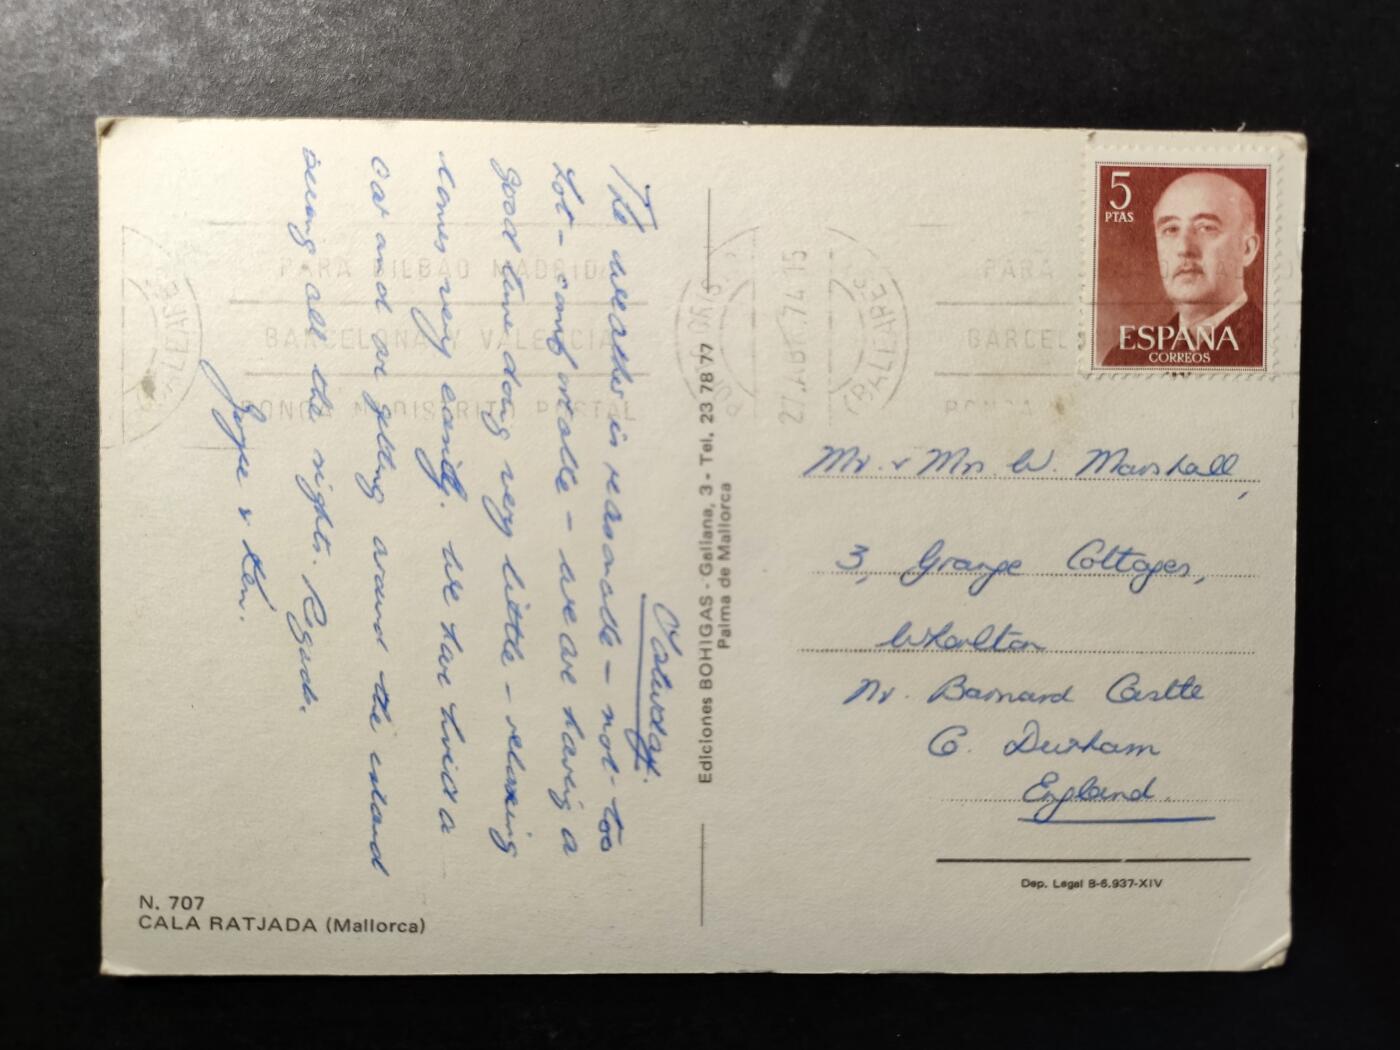 Saturday.
The weather is reasonable - not too
hot - comfortable - we are having a
good time doing very little - relaxing
comes very easily. We have hired a
car and are getting around the island
seeing all the sights. Regards.
Joyce & Ken.
N. 707
CALA RATJADA (Mallorca)
Ediciones BOHIGAS - Galiana, 3 - Tel. 23 78 77
Palma de Mallorca
PARA BILBAO MADRID
BARCELONA Y VALENCIA
PONGA DISTRITO POSTAL
27.ABR.74 15
(BALEARES
PARA
BARCEL
PONGA
5
PTAS
ESPAÑA
CORREOS
Mr. & Mrs W. Marshall,
3, Grange Cottages,
Whorlton
Nr. Barnard Castle
C. Durham
England.
Dep. Legal B-6.937-XIV